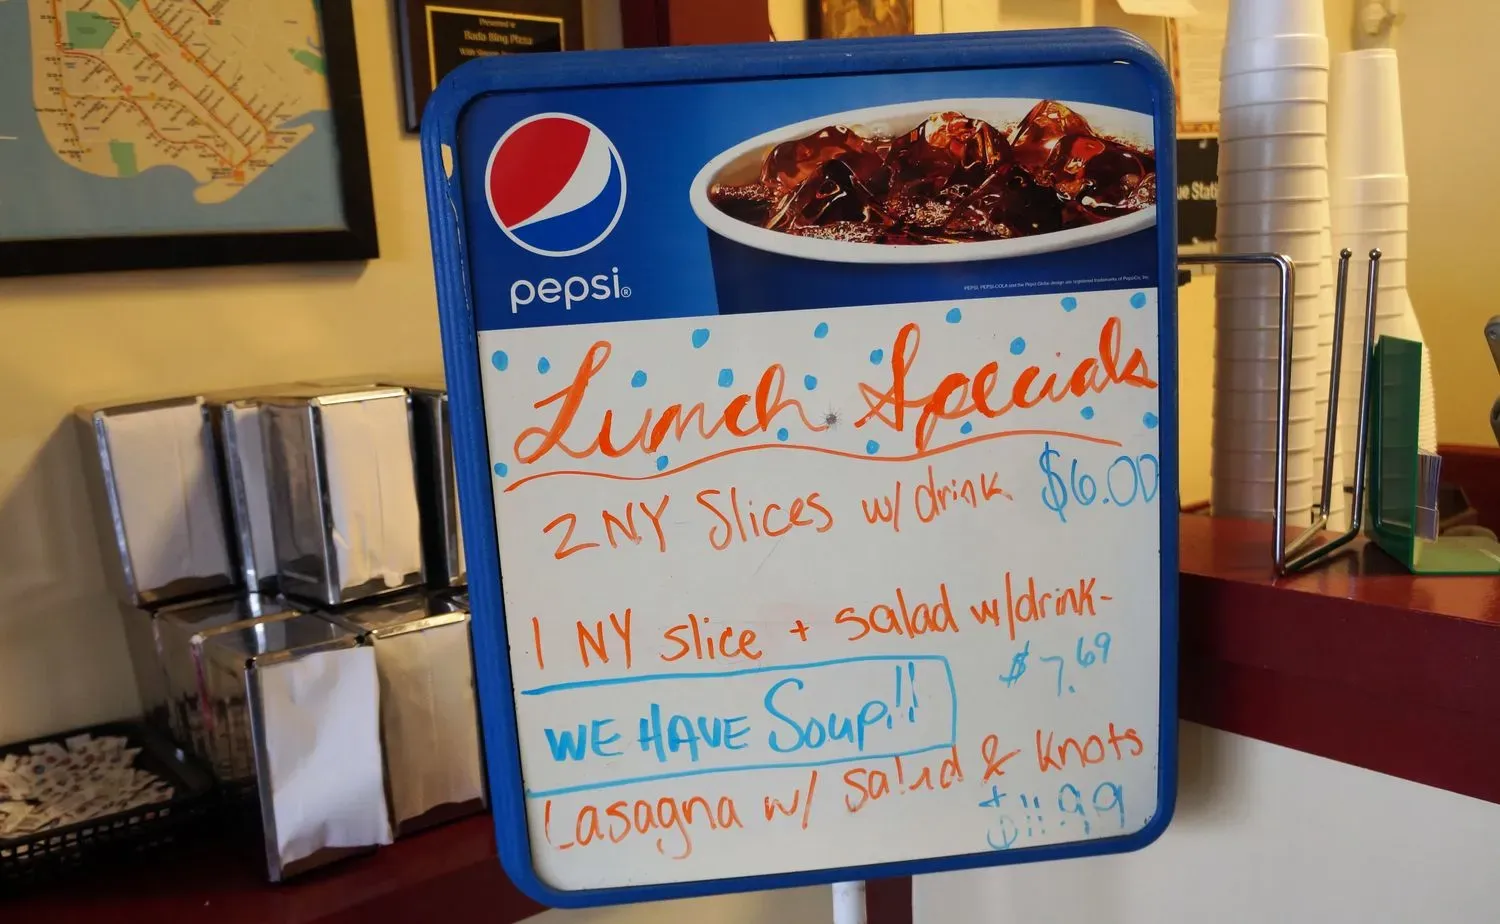 Presented to
Bada Bing Pizza
pepsi®
PEPSI, PEPSI-COLA and the Pepsi Globe design are registered trademarks of PepsiCo, Inc.
Lunch Specials
2 NY Slices w/ drink $6.00
1 NY slice + salad w/drink-
$7.69
WE HAVE Soup!!
Lasagna w/ salad & Knots
$11.99